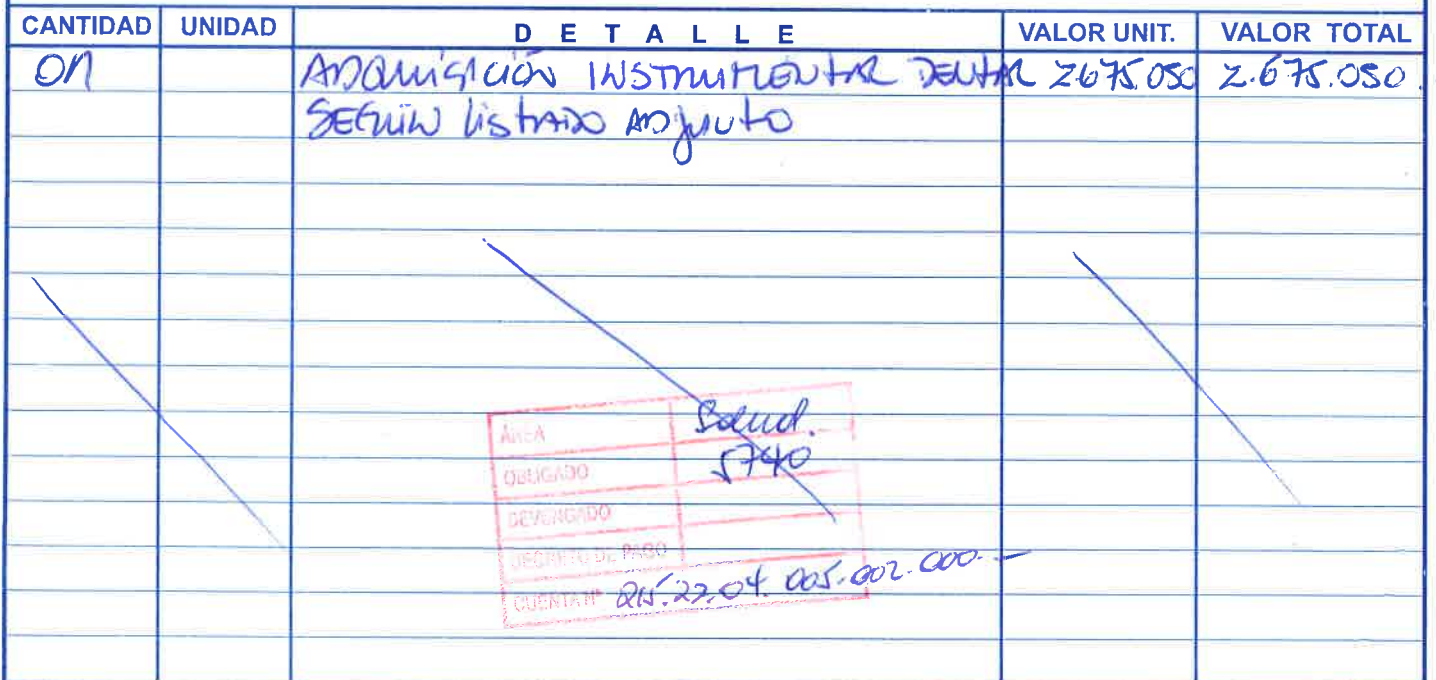 CANTIDAD UNIDAD DETALLE VALOR UNIT. VALOR TOTAL
01 ADQUISICIÓN INSTRUMENTAL DENTAL 2.675.050 2.675.050.
SEGÚN LISTADO ADJUNTO
AREA Salud.
OBLIGADO 5740
DEVENGADO
DECRETO DE PAGO
CUENTA Nº 215.22.04.005.002.000.-